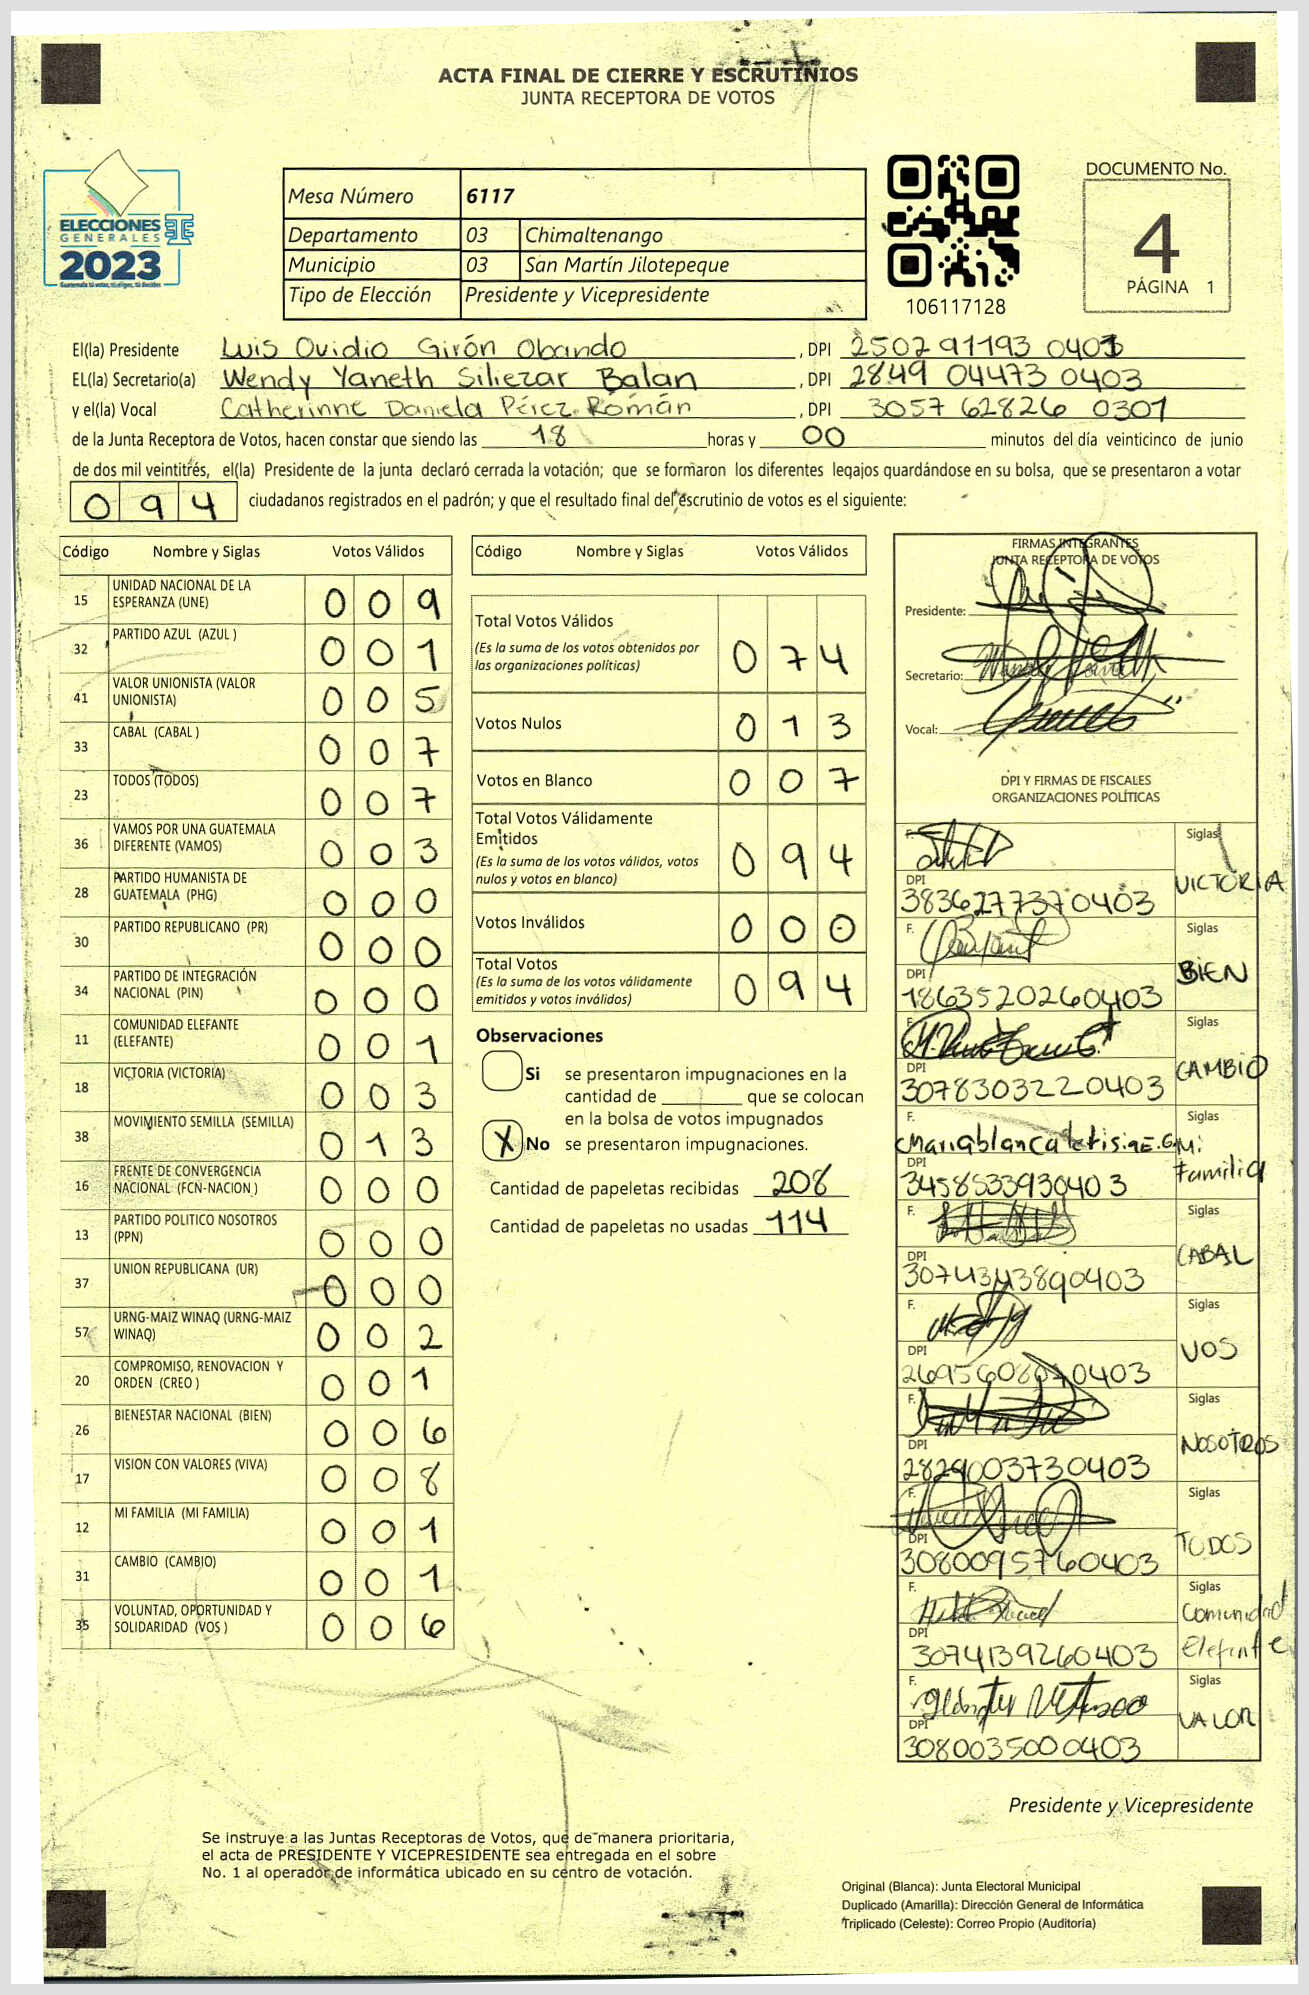 ACTA FINAL DE CIERRE Y ESCRUTINIOS
JUNTA RECEPTORA DE VOTOS
ELECCIONES
GENERALES
2023
Mesa Número 6117
Departamento 03 Chimaltenango
Municipio 03 San Martín Jilotepeque
Tipo de Elección Presidente y Vicepresidente
106117128
DOCUMENTO No.
4
PÁGINA 1
El(la) Presidente Luis Ovidio Girón Obando, DPI 2502 91193 0401
EL(la) Secretario(a) Wendy Yaneth Siliezar Balan, DPI 2849 04473 0403
y el(la) Vocal Catherinne Daniela Pérez Román, DPI 3057 62826 0301
de la Junta Receptora de Votos, hacen constar que siendo las 18 horas y 00 minutos del día veinticinco de junio
de dos mil veintitrés, el(la) Presidente de la junta declaró cerrada la votación; que se formaron los diferentes legajos guardándose en su bolsa, que se presentaron a votar
094 ciudadanos registrados en el padrón; y que el resultado final del escrutinio de votos es el siguiente:
Código Nombre y Siglas Votos Válidos
15 UNIDAD NACIONAL DE LA ESPERANZA (UNE) 009
32 PARTIDO AZUL (AZUL ) 001
41 VALOR UNIONISTA (VALOR UNIONISTA) 005
33 CABAL (CABAL ) 007
23 TODOS (TODOS) 007
36 VAMOS POR UNA GUATEMALA DIFERENTE (VAMOS) 003
28 PARTIDO HUMANISTA DE GUATEMALA (PHG) 000
30 PARTIDO REPUBLICANO (PR) 000
34 PARTIDO DE INTEGRACIÓN NACIONAL (PIN) 000
11 COMUNIDAD ELEFANTE (ELEFANTE) 001
18 VICTORIA (VICTORIA) 003
38 MOVIMIENTO SEMILLA (SEMILLA) 013
16 FRENTE DE CONVERGENCIA NACIONAL (FCN-NACION ) 000
13 PARTIDO POLITICO NOSOTROS (PPN) 000
37 UNION REPUBLICANA (UR) 000
57 URNG-MAIZ WINAQ (URNG-MAIZ WINAQ) 002
20 COMPROMISO, RENOVACION Y ORDEN (CREO ) 001
26 BIENESTAR NACIONAL (BIEN) 006
17 VISION CON VALORES (VIVA) 008
12 MI FAMILIA (MI FAMILIA) 001
31 CAMBIO (CAMBIO) 001
35 VOLUNTAD, OPORTUNIDAD Y SOLIDARIDAD (VOS ) 006
Código Nombre y Siglas Votos Válidos
Total Votos Válidos 074
(Es la suma de los votos obtenidos por
las organizaciones políticas)
Votos Nulos 013
Votos en Blanco 007
Total Votos Válidamente
Emitidos 094
(Es la suma de los votos válidos, votos
nulos y votos en blanco)
Votos Inválidos 000
Total Votos 094
(Es la suma de los votos válidamente
emitidos y votos inválidos)
Observaciones
Si se presentaron impugnaciones en la
cantidad de ________ que se colocan
en la bolsa de votos impugnados
X No se presentaron impugnaciones.
Cantidad de papeletas recibidas 208
Cantidad de papeletas no usadas 114
FIRMAS INTEGRANTES
JUNTA RECEPTORA DE VOTOS
Presidente:
Secretario:
Vocal:
DPI Y FIRMAS DE FISCALES
ORGANIZACIONES POLÍTICAS
F. Siglas VICTORIA
DPI 3836277370403
F. Siglas BIEN
DPI 1863520260403
F. Siglas CAMBIO
DPI 3078303220403
F. Siglas Mi Familia
DPI 3458533930403
F. Siglas CABAL
DPI
F. Siglas VOS
DPI
F. Siglas NOSOTROS
DPI 2829003730403
F. Siglas TODOS
DPI 3080095760403
F. Siglas Comunidad Elefante
DPI 3074139260403
F. Siglas VALOR
DPI 3080035000403
Presidente y Vicepresidente
Se instruye a las Juntas Receptoras de Votos, que de manera prioritaria,
el acta de PRESIDENTE Y VICEPRESIDENTE sea entregada en el sobre
No. 1 al operador de informática ubicado en su centro de votación.
Original (Blanca): Junta Electoral Municipal
Duplicado (Amarilla): Dirección General de Informática
Triplicado (Celeste): Correo Propio (Auditoría)